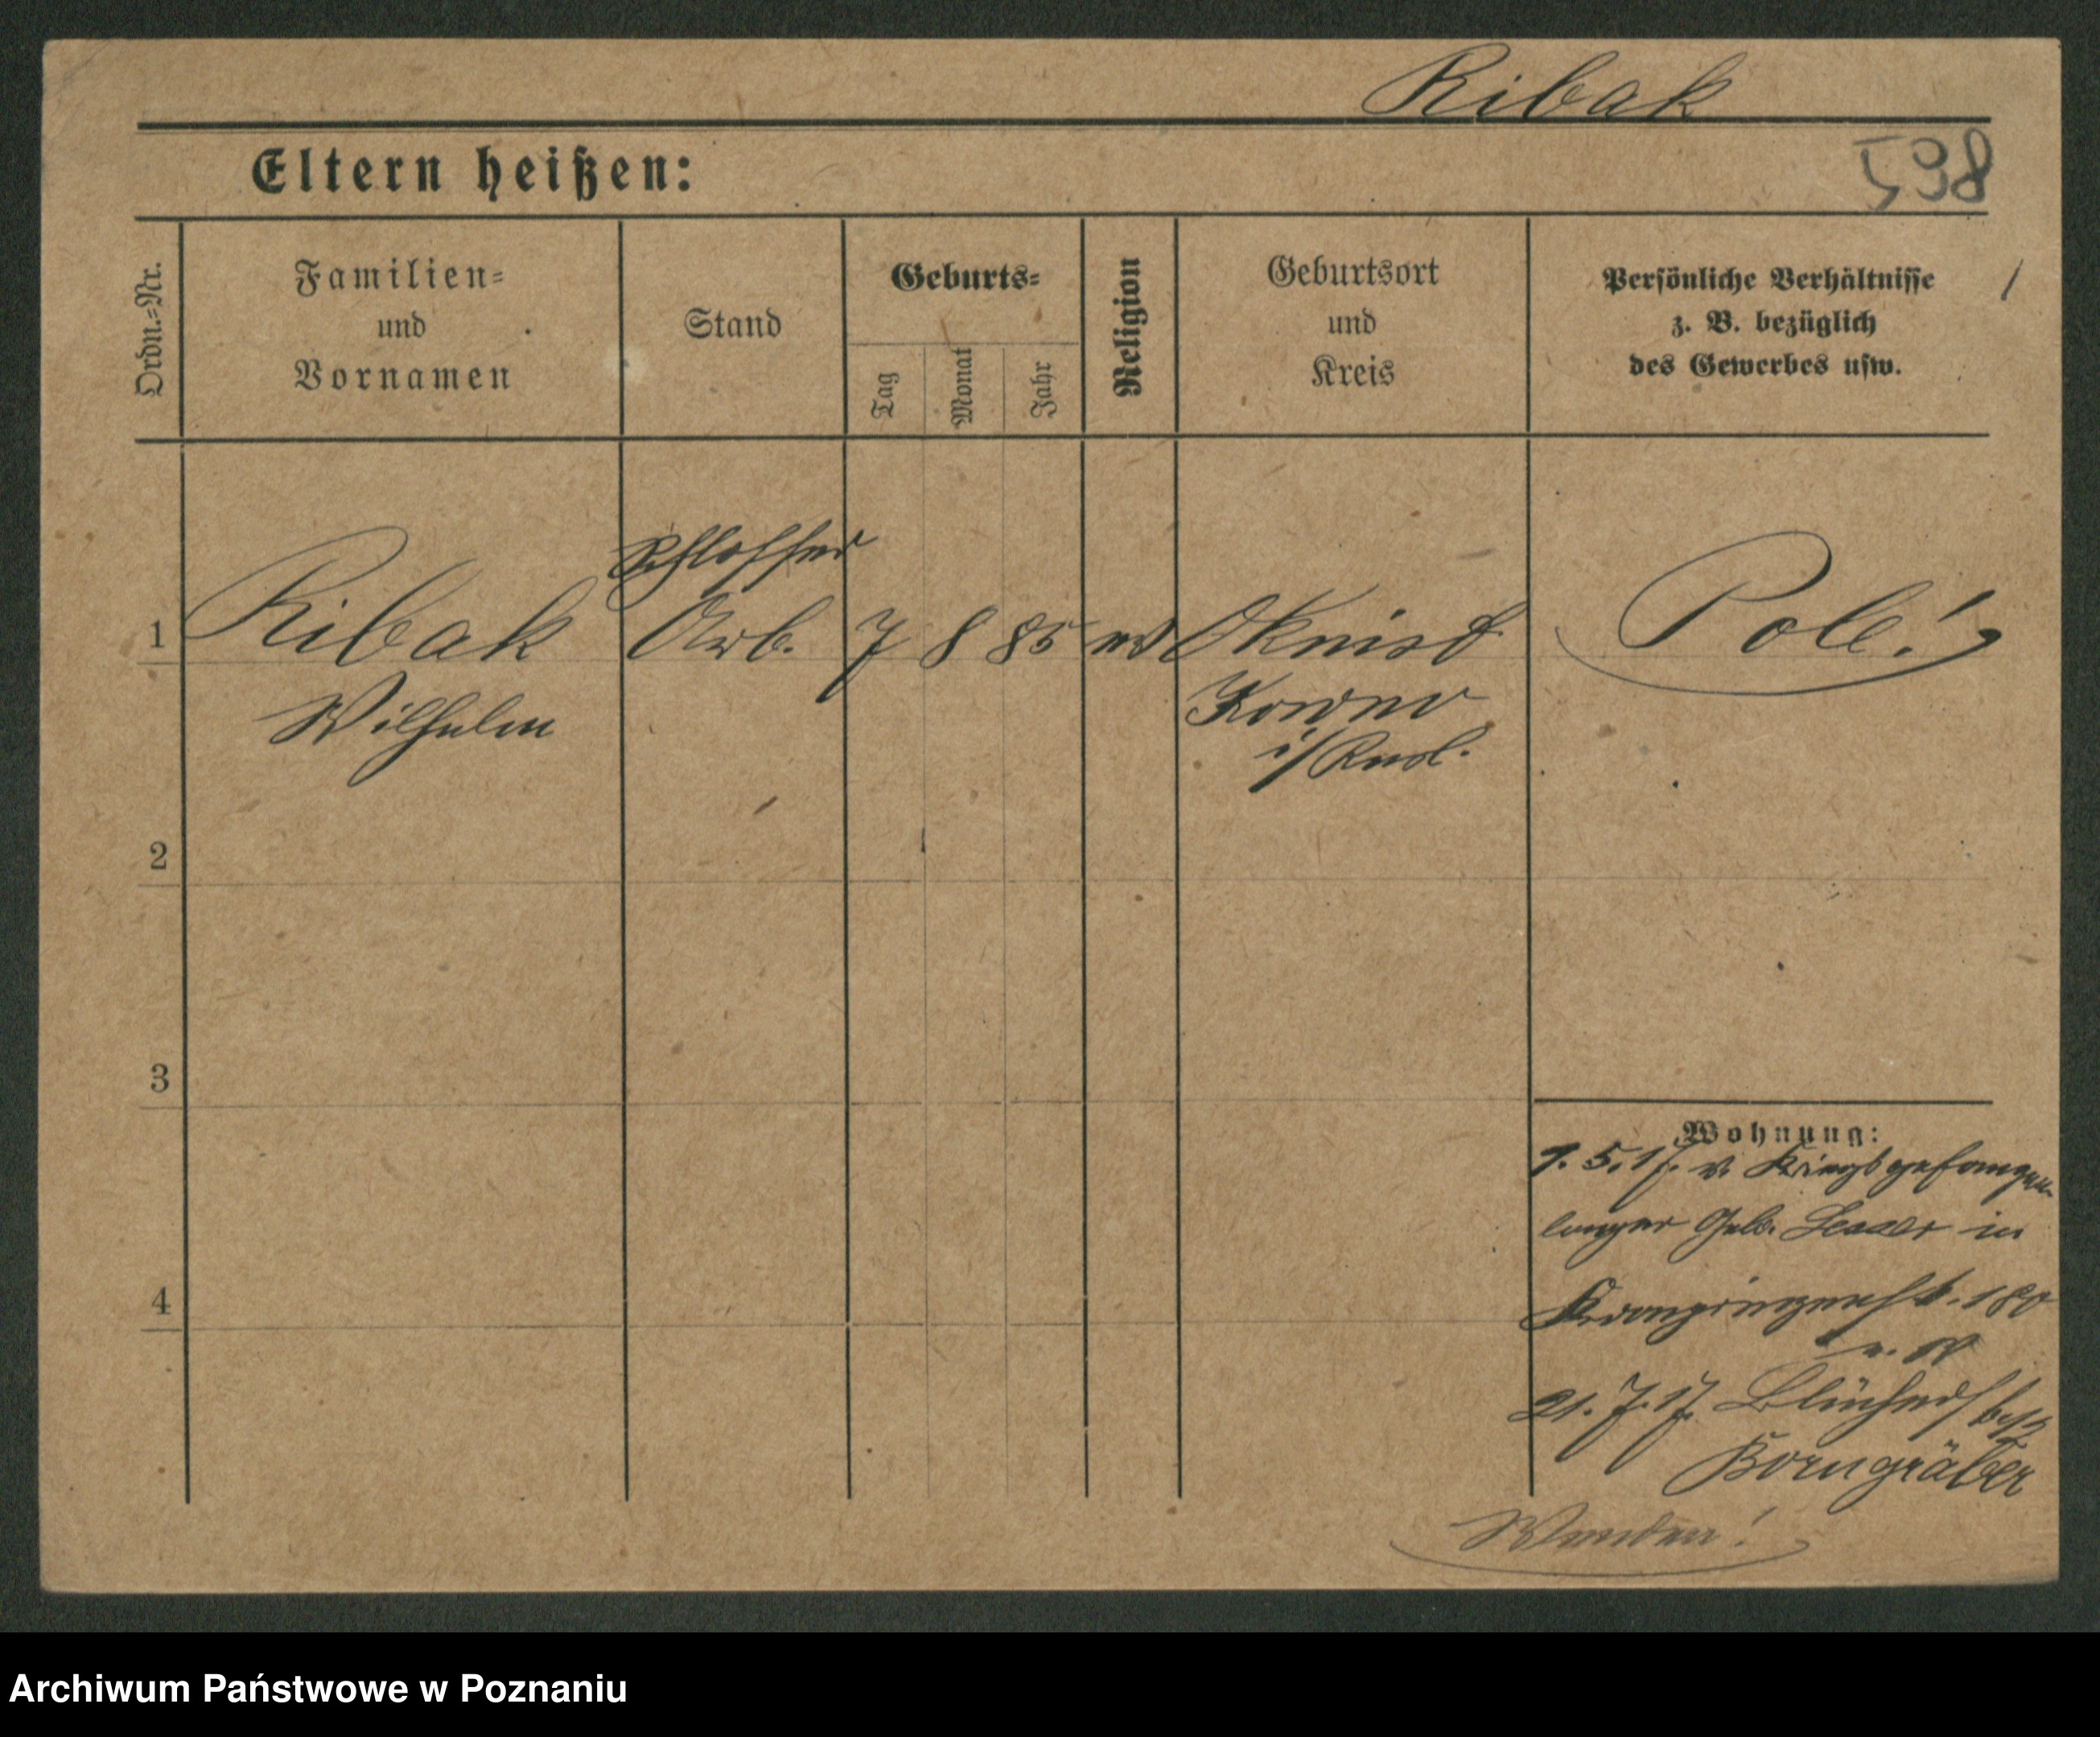 Ribak
598
Eltern heißen:
Ordn.-Nr.
Familien-
und
Vornamen
Stand
Geburts-
Tag
Monat
Jahr
Religion
Geburtsort
und
Kreis
Persönliche Verhältnisse
z. B. bezüglich
des Gewerbes usw.
1
Schlosser
1 Ribak Arb. 7 8 85 Oknist Pole!
Wilhelm Kowno
i/Rusl.
2
3
4
Wohnung:
7. 5. 17. v. Kriegsgefangen
lager Gebr. Lesser in
Kronprinzenstr. 180
21. 7. 17. Blücherstr.
Borngräber
Wenden!
Archiwum Państwowe w Poznaniu